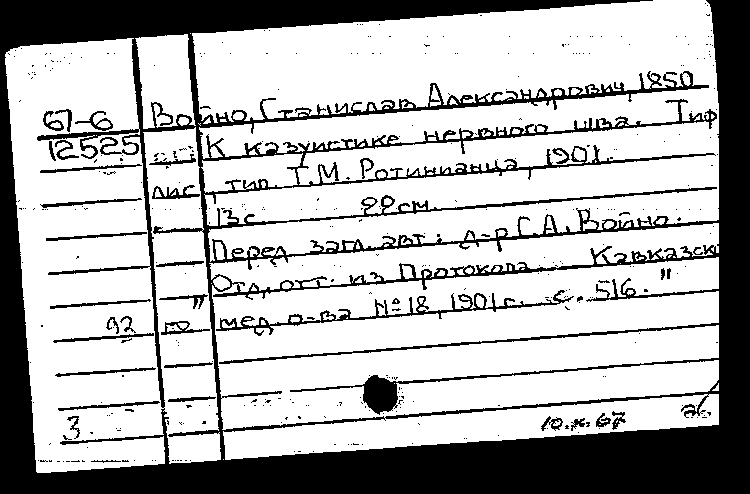 67-6 Войно, Станислав Александрович, 1850
12525 К казуистике нервного шва. Тиф
лис, тип. Т.М. Ротинианца, 1901.
13с 22см.
Перед загл. авт: д-р С.А. Войно.
Отд. отт. из Протокола... Кавказск
92 го " мед. о-ва №18, 1901г. с. 516."
3. 10.х.67